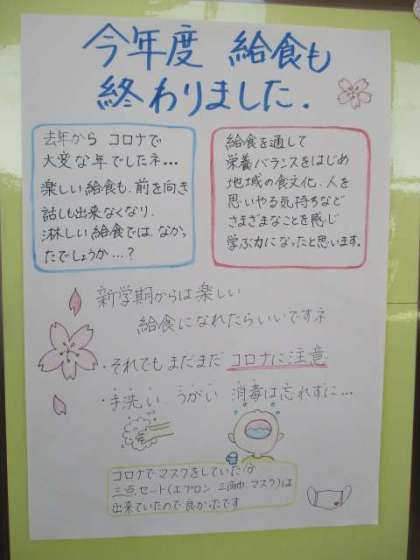 今年度 給食も
終わりました.
去年から コロナで
大変な年でしたネ...
楽しい給食も、前を向き
話しも出来なくなり、
淋しい給食では、なかっ
たでしょうか...?
給食を通して
栄養バランスをはじめ
地域の食文化、人を
思いやる気持ちなど
さまざまなことを感じ
学ぶ力になったと思います。
新学期からは楽しい
給食になれたらいいですネ
・それでもまだまだ コロナに注意
・手洗い、うがい 消毒は忘れずに...
コロナで マスクをしていた分
三点セート(エプロン 三角巾 マスク)は
出来ていたので良かったです